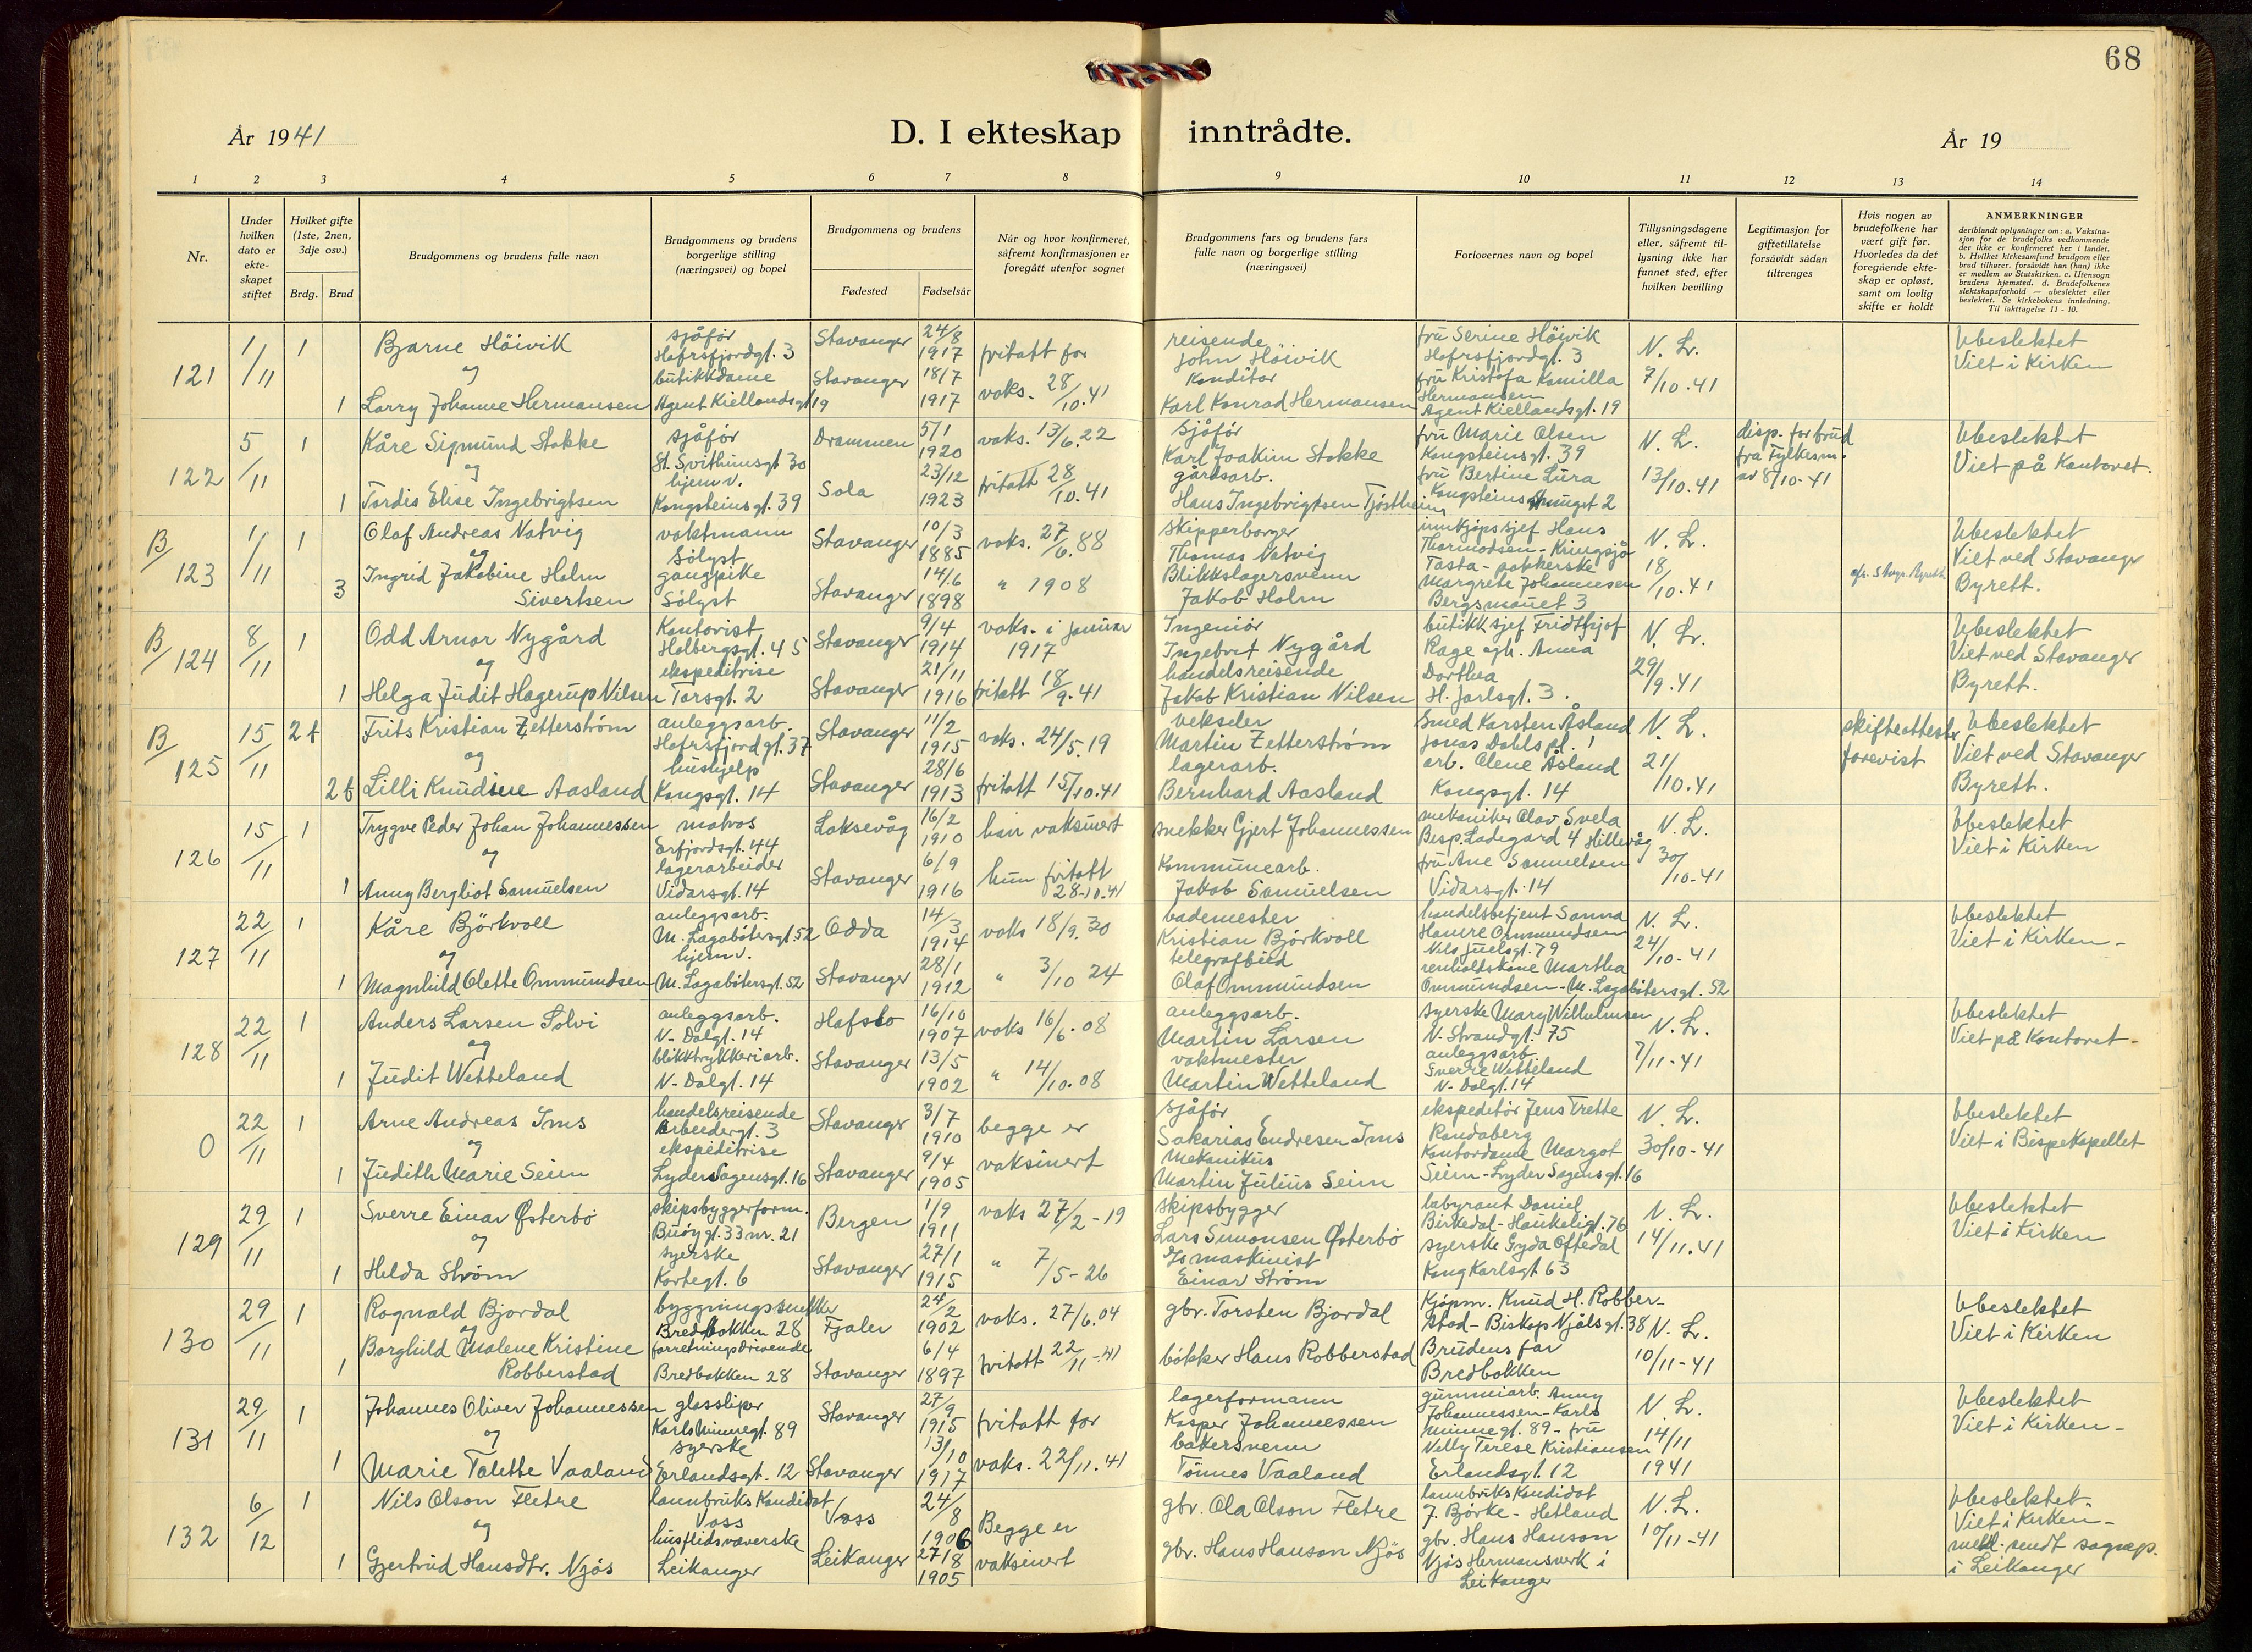 68
År 1941
D. I ekteskap inntrådte.
År 19
1 2 3 4 5 6 7 8 9 10 11 12 13 14
Nr.
Under hvilken dato er ekte- skapet stiftet
Hvilket gifte (1ste, 2nen, 3dje osv.)
Brdg. Brud
Brudgommens og brudens fulle navn
Brudgommens og brudens borgerlige stilling (næringsvei) og bopel
Brudgommens og brudens
Fødested Fødselsår
Når og hvor konfirmeret, såfremt konfirmasjonen er foregått utenfor sognet
Brudgommens fars og brudens fars fulle navn og borgerlige stilling (næringsvei)
Forlovernes navn og bopel
Tillysningsdagene eller, såfremt til- lysning ikke har funnet sted, efter hvilken bevilling
Legitimasjon for giftetillatelse forsåvidt sådan tiltrenges
Hvis nogen av brudefolkene har vært gift før. Hvorledes da det foregående ekte- skap er opløst, samt om lovlig skifte er holdt
ANMERKNINGER
deriblandt oplysninger om: a. Vaksina- sjon for de brudefolks vedkommende der ikke er konfirmeret her i landet. b. Hvilket kirkesamfund brudgom eller brud tilhører, forsåvidt han (hun) ikke er medlem av Statskirken. c. Utensogn brudens hjemsted. d. Brudefolkenes slektskapsforhold — ubeslektet eller beslektet. Se kirkebokens innledning. Til iakttagelse 11 - 10.
121 1/11 1 Bjarne Höivik sjåför Hafrsfjordgt. 3 Stavanger 24/8 1917 fritatt for reisende John Höivik fru Serine Höivik Hafrsfjordgt. 3 N. L. Ubeslektet
og
1 Larry Johanne Hermansen butikkdame Agent Kiellandsgt 19 Stavanger 18/7 1917 vaks. 28/10.41 Konditor Karl Konrad Hermansen fru Kristofa Kamilla Hermansen Agent Kiellandsgt. 19 7/10.41 Viet i Kirken
122 5/11 1 Kåre Sigmund Stokke sjåför St. Svithunsgt 30 Drammen 5/1 1920 vaks. 13/6.22 sjåför Karl Joakim Stokke fru Marie Olsen Kongsteinsgt. 39 N. L. disp. for brud fra Fylkesm. av 8/10-41 Ubeslektet
og
1 Tordis Elise Ingebrigtsen hjemv. Kongsteinsgt. 39 Sola 23/12 1923 fritatt 28/10.41 gårdsarb. Hans Ingebrigtsen Tjöstheim fru Bertine Lura 13/10.41 Viet på Kontoret.
B/123 1/11 1 Olaf Andreas Natvig vaktmann Sölyst Stavanger 10/3 1885 vaks. 27/6.88 skipperborger Thomas Natvig innkjöpssjef Hans Thormodsen - Kringsjå Tasta N. L. Ubeslektet
og
3 Ingrid Jakobine Holm Sivertsen gangpike Sölyst Stavanger 14/6 1898 " 1908 Blikkslagersvenn Jakob Holm pakkerske Margrete Johannesen Bergsmauet 3 18/10.41 Viet ved Stavanger Byrett.
B/124 8/11 1 Odd Arnor Nygård Kontorist Holbergsgt. 45 Stavanger 9/4 1914 vaks. i januar 1917 Ingeniör Ingebret Nygård butikksjef Fridthjof Rage N. L. Ubeslektet
og
1 Helga Judit Hagerup Nilsen ekspeditrise Torsgt. 2 Stavanger 21/11 1916 fritatt 18/9.41 handelsreisende Jakob Kristian Nilsen Anna Dorthea H. Jarlsgt. 3. 29/9.41 Viet ved Stavanger Byrett.
B/125 15/11 2 f Frits Kristian Zetterström anleggsarb. Hafrsfjordgt. 37 Stavanger 11/2 1915 vaks. 24/5.19 vekseler Martin Zetterström Smed Karsten Åsland Jonas Dahls pl. 1 N. L. skifteattester forevist Ubeslektet
og
2 f Lilli Knudsine Aasland hushjelp Kongsgt. 14 Stavanger 28/6 1913 fritatt 15/10.41 lagerarb. Bernhard Aasland arb. Olene Åsland Kongsgt. 14 21/10.41 Viet ved Stavanger Byrett.
126 15/11 1 Trygve Peder Johan Johannessen matros Erfjordsgt. 44 Laksevåg 16/2 1910 han vaksinert snekker Gjert Johannessen mekaniker Olav Svela Bisp. Ladegard 4 Hillevåg N. L. Ubeslektet
og
1 Anny Bergliot Samuelsen lagerarbeider Vidarsgt. 14 Stavanger 6/9 1916 hun fritatt 28-10.41 Kommunearb. Jakob Samuelsen fru Ane Samuelsen Vidarsgt. 14 30/10-41 Viet i Kirken
127 22/11 1 Kåre Björkvoll anleggsarb. M. Lagabötersgt. 52 Odda 14/3 1914 vaks 18/9.30 bademester Kristian Björkvoll handelsbetjent Sanna Hamre Ommundsen Nils Juelsgt. 79 N. L. Ubeslektet
og
1 Magnhild Olette Ommundsen hjemv. M. Lagabötersgt. 52 Stavanger 28/1 1912 " 3/10 24 telegrafbud Olaf Ommundsen renholdskone Martha Ommundsen - M. Lagabötersgt. 52 24/10-41 Viet i Kirken -
128 22/11 1 Anders Larsen Solvi anleggsarb. N. Dalgt. 14 Hafslo 16/10 1907 vaks 16/6.08 anleggsarb. Martin Larsen syerske Mary Wilhelmsen N. Strandgt. 75 N. L. Ubeslektet
og
1 Judit Wetteland blikktrykkeriarb. N. Dalgt. 14 Stavanger 13/5 1902 " 14/10.08 vaktmester Martin Wetteland anleggsarb. Sverre Wetteland N. Dalgt. 14 7/11-41 Viet på Kontoret -
0 22/11 1 Arne Andreas Ims handelsreisende Arbeidergt. 3 Stavanger 3/7 1910 begge er sjåför Sakarias Endresen Ims ekspeditör Jens Trette Randaberg N. L. Ubeslektet
og
1 Judith Marie Seim ekspeditrise Lyder Sagensgt. 16 Stavanger 9/4 1905 vaksinert Mekanikus Martin Julius Seim Kontordame Margot Seim - Lyder Sagensgt. 16 30/10-41 Viet i Bispekapellet
129 29/11 1 Sverre Einar Österbö skipsbyggerform. Buöygt. 33 nr. 21 Bergen 1/9 1911 vaks 27/2-19 skipsbygger Lars Simonsen Österbö Daniel Birkedal - Haukeligt. 76 N. L. Ubeslektet
og
1 Helda Ström syerske Kortegt. 6 Stavanger 27/1 1915 " 7/5-26 maskinist Einar Ström syerske Gyda Oftedal Kong Karlsgt 63 14/11.41 Viet i Kirken
130 29/11 1 Ragnald Bjordal byggningssnekker Bredbakken 28 Fjaler 24/2 1902 vaks. 27/6.04 gbr. Torsten Bjordal Kjöpm. Knud H. Robberstad - Biskop Njålsgt. 38 N. L. Ubeslektet
og
1 Borghild Malene Kristine Robberstad forretningsdrivende Bredbakken 28 Stavanger 6/4 1897 fritatt 22/11-41 bökker Hans Robberstad Brudens far Bredbakken 10/11-41 Viet i Kirken
131 29/11 1 Johannes Oliver Johannessen glassliper Karlsminnegt. 89 Stavanger 27/9 1915 fritatt for lagerformann Kasper Johannessen gummiarb. Anny Johannessen - Karlsminnegt. 89 N. L. Ubeslektet
og
1 Marie Talette Vaaland syerske Erlandsgt. 12 Stavanger 13/10 1917 vaks. 22/11.41 bakersvenn Tönnes Vaaland fru Velly Terese Kristiansen Erlandsgt. 12 14/11 1941 Viet i Kirken -
132 6/12 1 Nils Olson Fletre lannbruks Kandidat Voss Voss 24/8 1906 Begge er gbr. Ola Olson Fletre lannbruks Kandidat J. Björke - Hetland N. L. Ubeslektet.
og
1 Gjertrud Hansdtr. Njös husflidsvæverske Leikanger Leikanger 27/8 1905 vaksinert gbr. Hans Hanson Njös gbr. Hans Hanson Njös Hermansverk i Leikanger 10/11-41 Viet i Kirken - meld. sendt sognep. i Leikanger